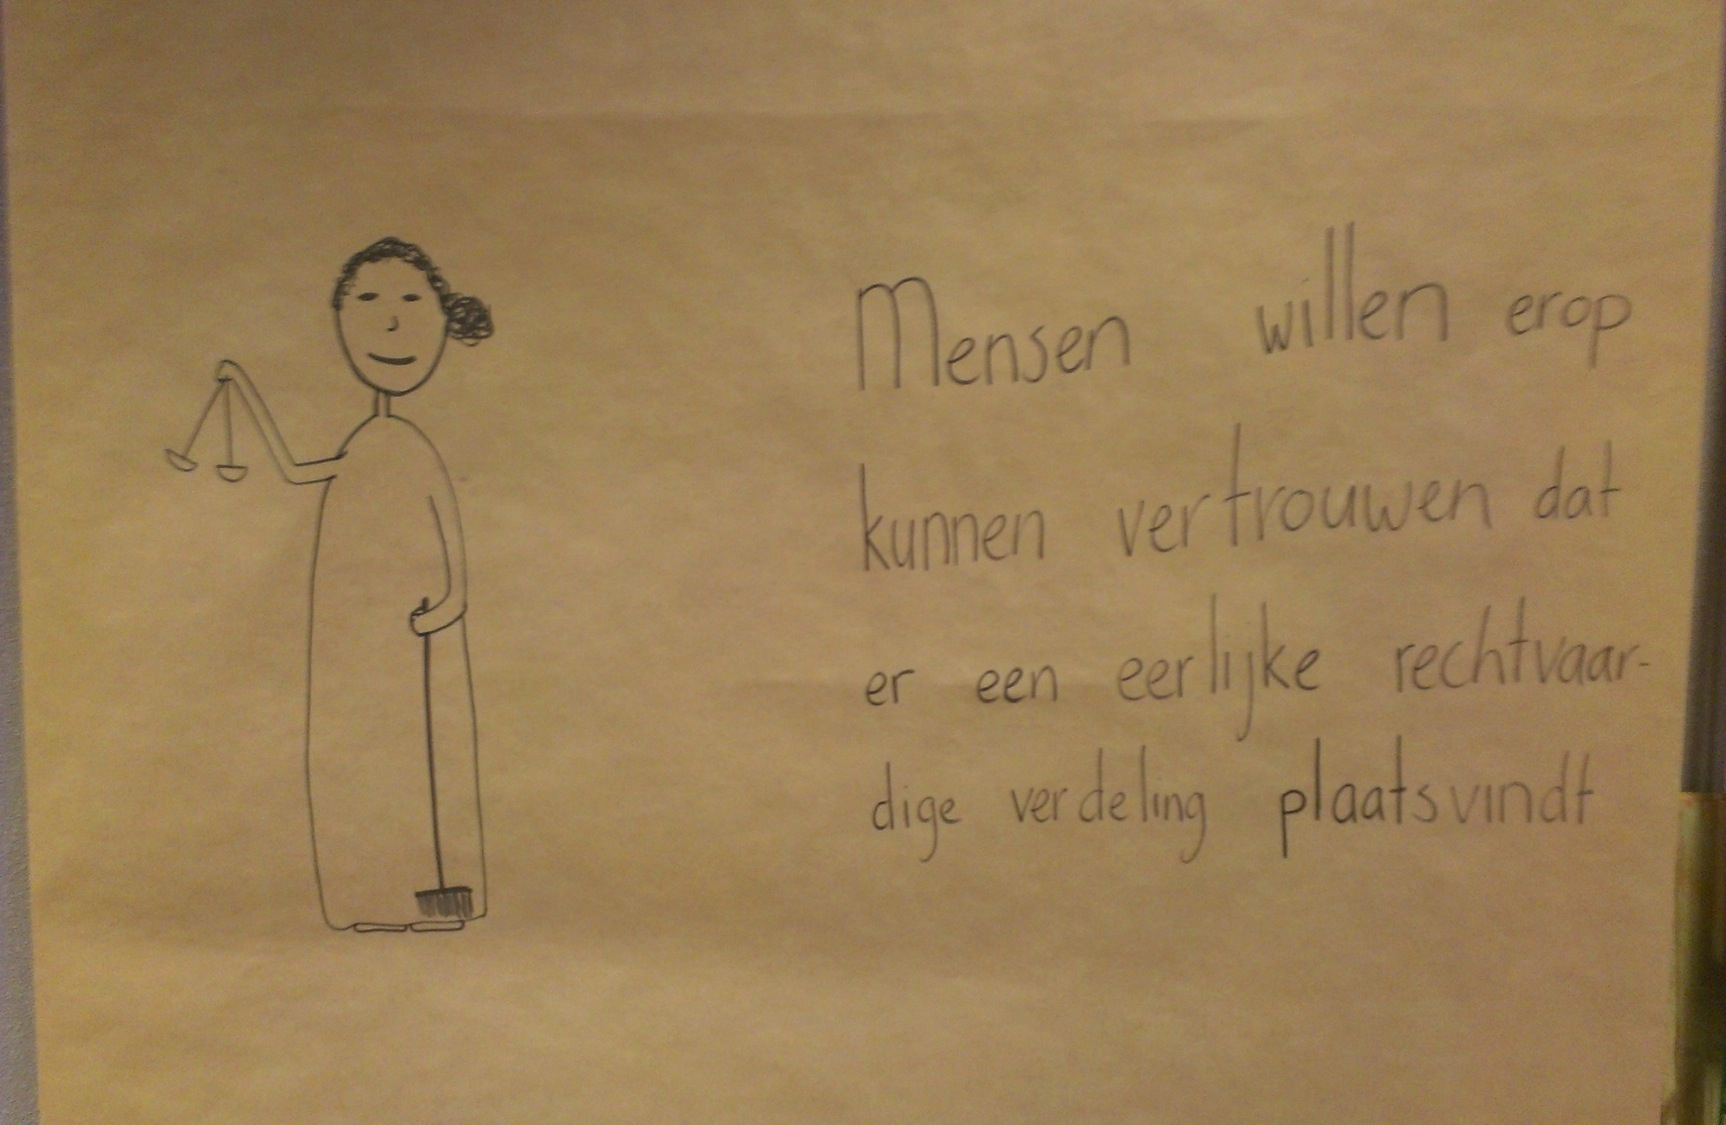 Mensen willen erop
kunnen vertrouwen dat
er een eerlijke rechtvaar-
dige verdeling plaatsvindt